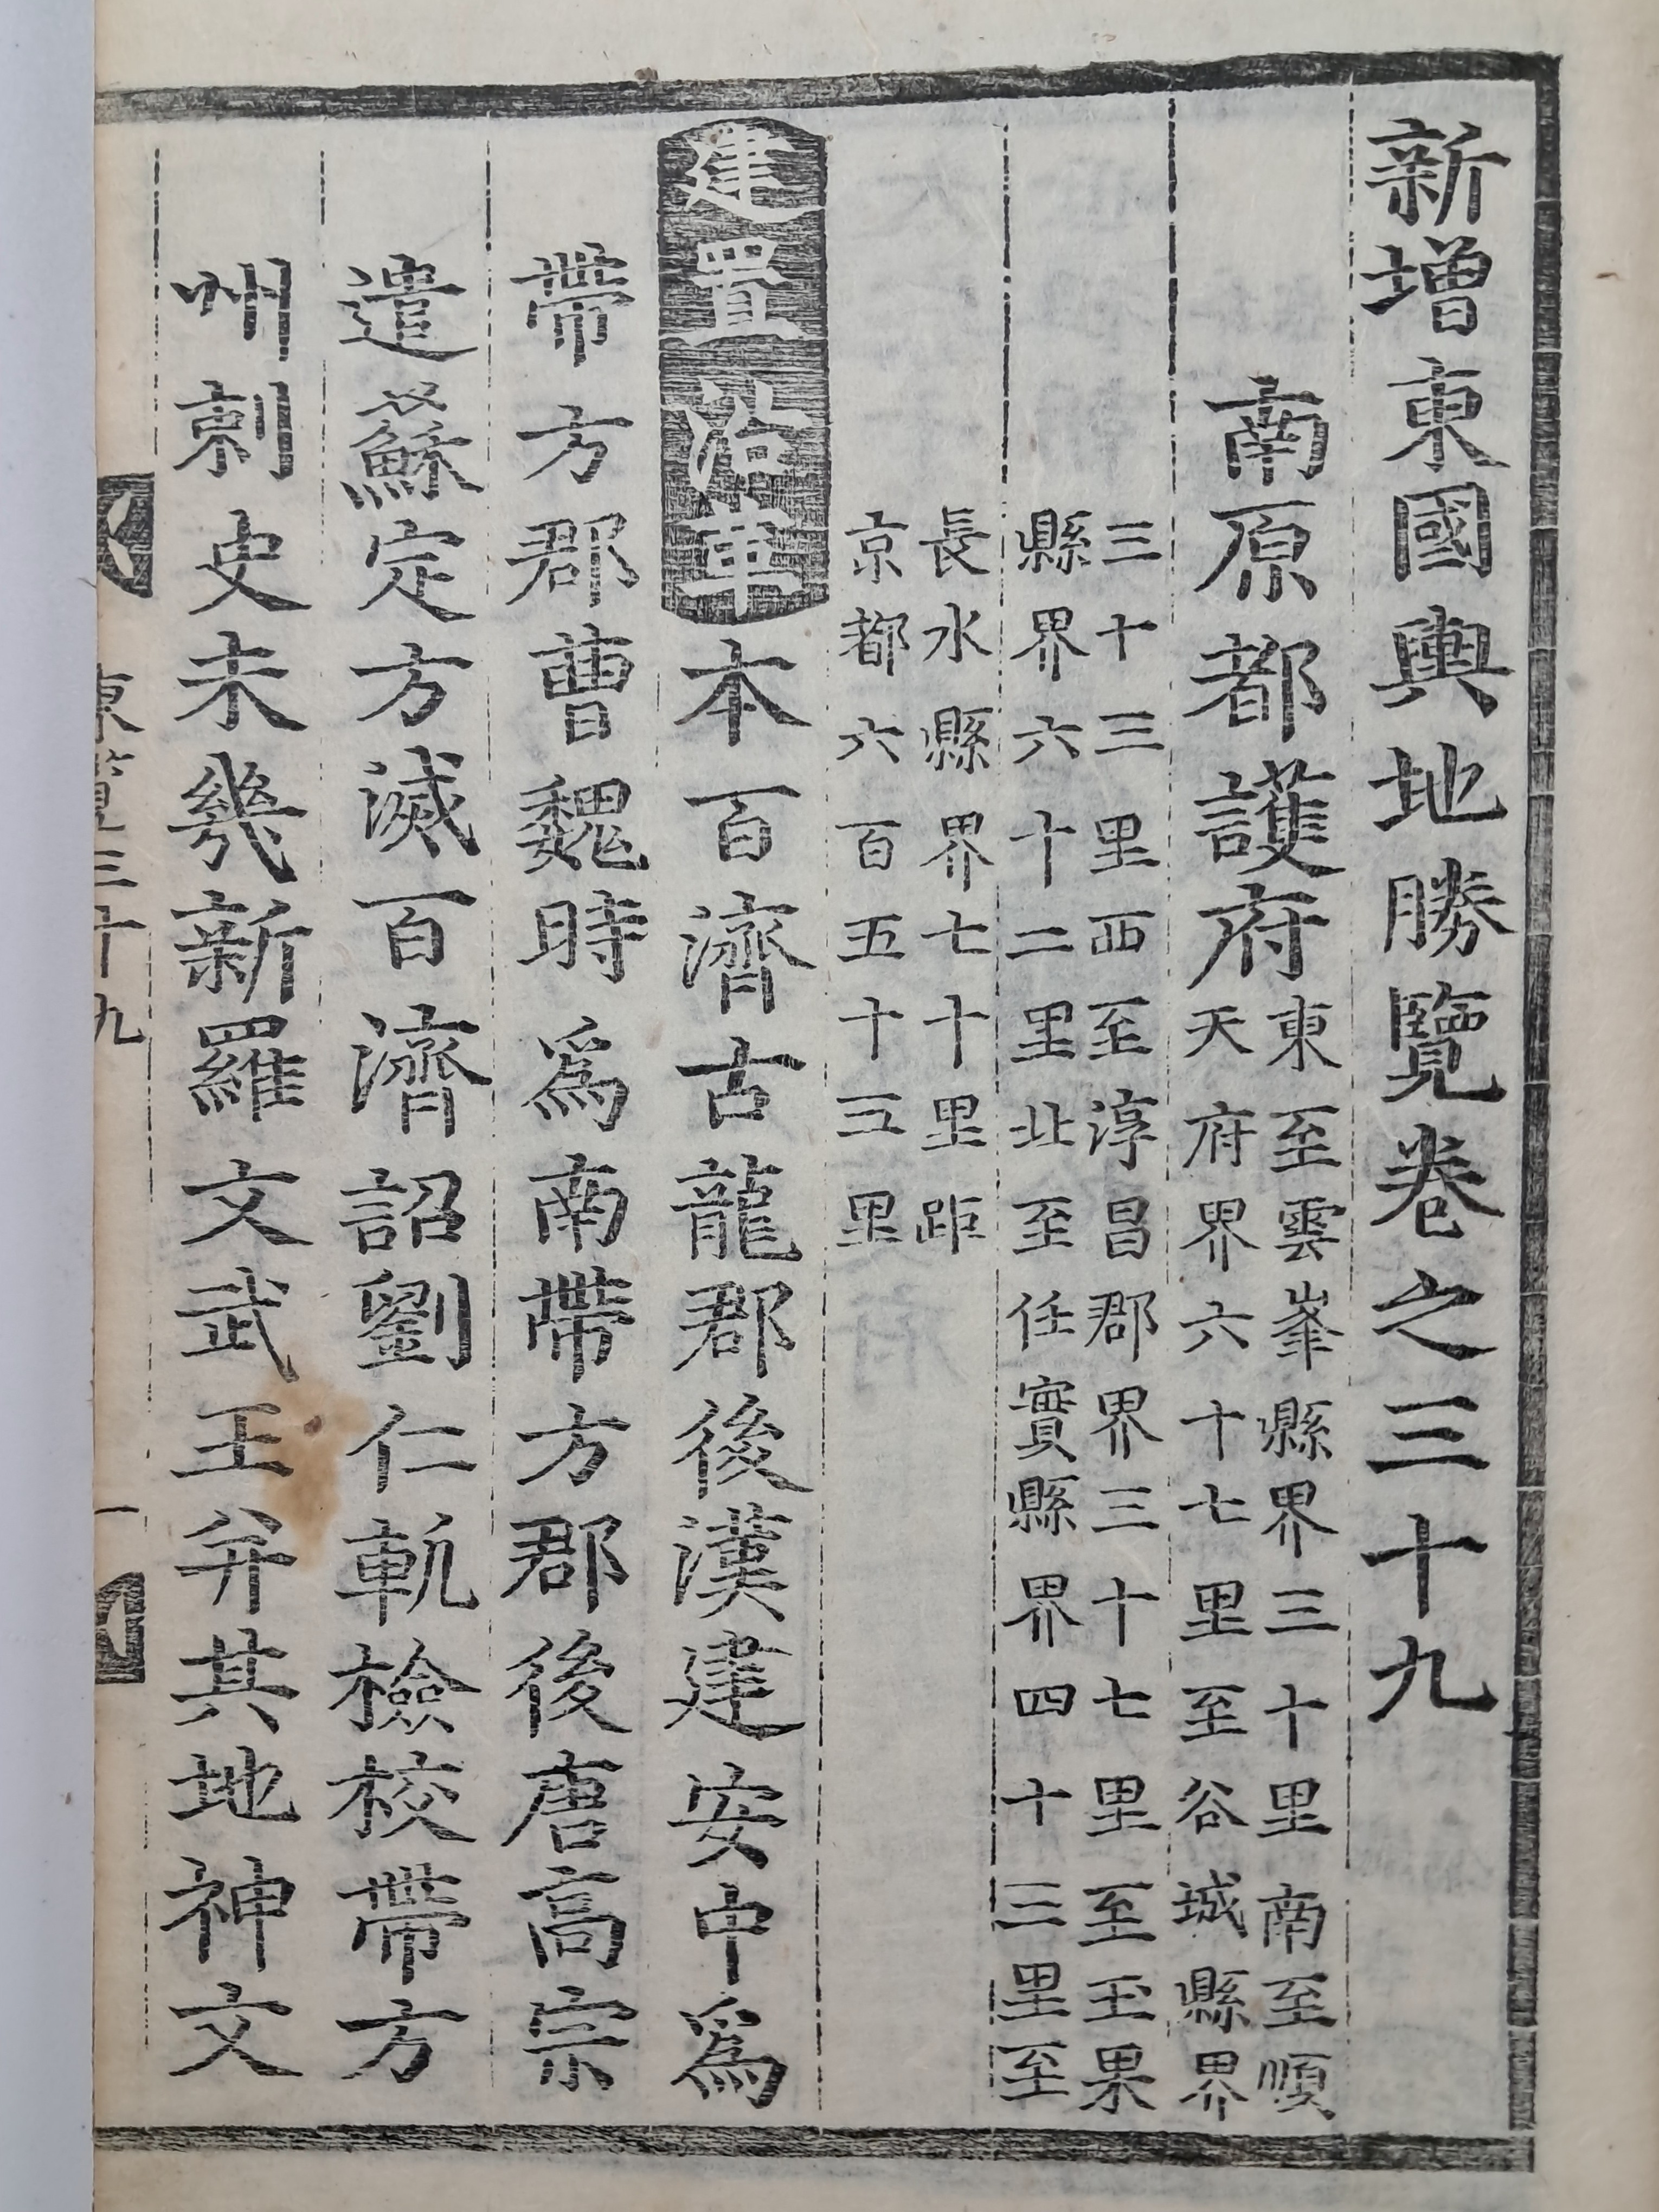 新增東國輿地勝覽卷之三十九
南原都護府
東至雲峯縣界三十里南至順
天府界六十七里至谷城縣界
三十三里西至淳昌郡界三十七里至玉果
縣界六十二里北至任實縣界四十三里至
長水縣界七十里距
京都六百五十三里
建置沿革
本百濟古龍郡後漢建安中爲
帶方郡曹魏時爲南帶方郡後唐高宗
遣蘇定方滅百濟詔劉仁軌檢校帶方
州刺史未幾新羅文武王弁其地神文
三十九
一